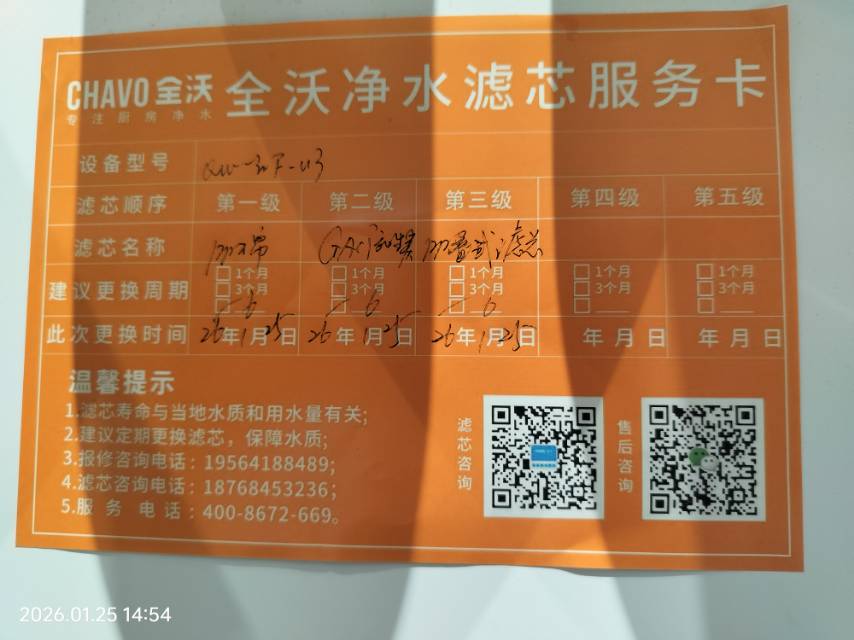 CHAVO 全沃
专注厨房净水
全沃净水滤芯服务卡
设备型号
滤芯顺序 第一级 第二级 第三级 第四级 第五级
滤芯名称 折叠式滤芯
建议更换周期 □1个月 □3个月 □ 6 □1个月 □3个月 □ 6 □1个月 □3个月 □ 6 □1个月 □3个月 □ □1个月 □3个月 □
此次更换时间 26年1月25日 26年1月25日 26年1月25日 年月日 年月日
温馨提示
1.滤芯寿命与当地水质和用水量有关;
2.建议定期更换滤芯，保障水质;
3.报修咨询电话：19564188489;
4.滤芯咨询电话：18768453236;
5.服务电话：400-8672-669。
滤芯咨询
售后咨询
2026.01.25 14:54